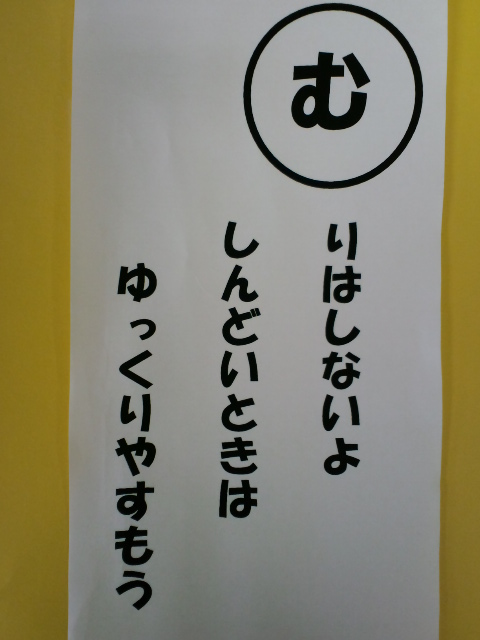 む
りはしないよ
しんどいときは
ゆっくりやすもう